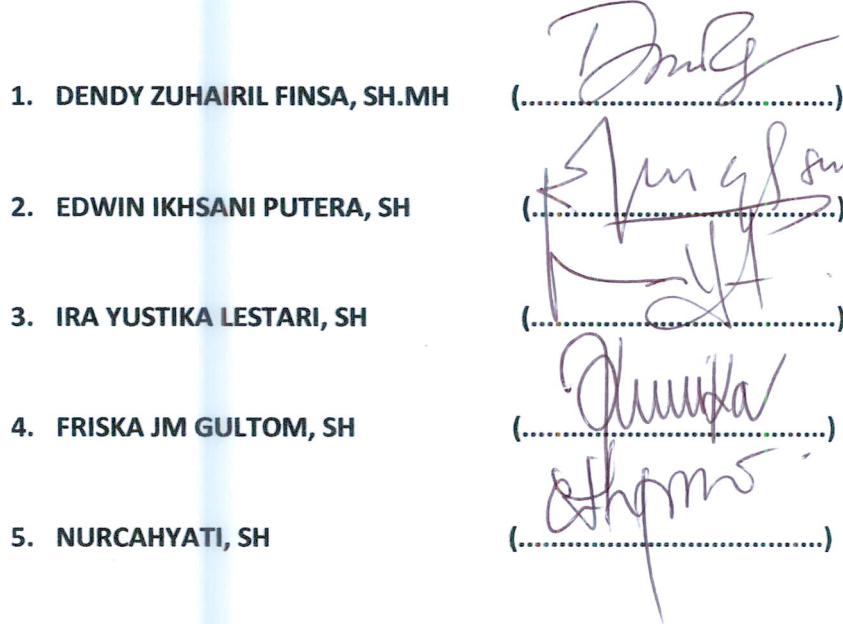 1. DENDY ZUHAIRIL FINSA, SH.MH (..........................................)
2. EDWIN IKHSANI PUTERA, SH (..........................................)
3. IRA YUSTIKA LESTARI, SH (..........................................)
4. FRISKA JM GULTOM, SH (..........................................)
5. NURCAHYATI, SH (..........................................)